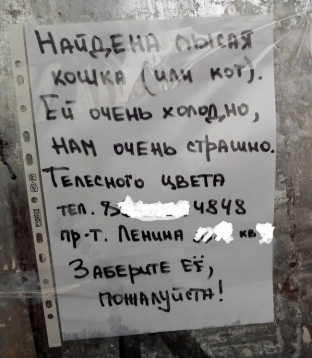 Найдена лысая
кошка (или кот).
Ей очень холодно,
нам очень страшно.
Телесного цвета
тел. 8 4848
пр-т. Ленина кв
Заберите её,
пожалуйста!